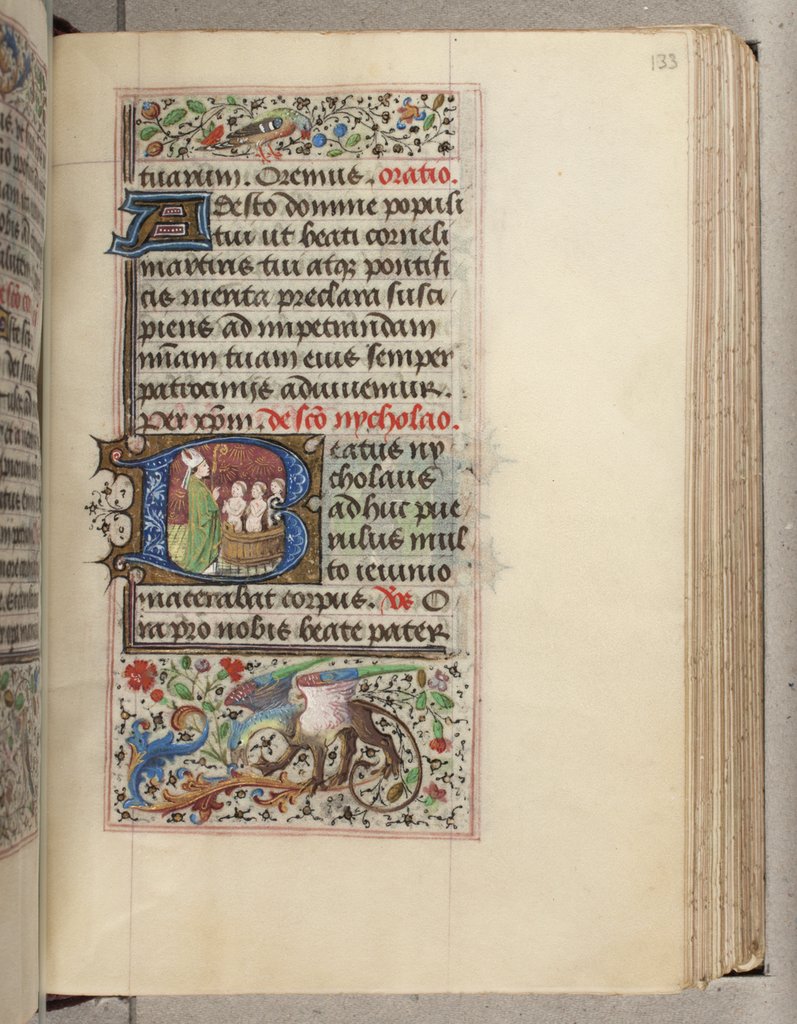 133
tuarum. Oremus. oratio.
Adesto domine populi
tui ut beati corneli
martiris tui atqꝫ pontifi
cis merita preclara susci
piens ad impetrandam
miam tuam eius semper
patrocinijs adiuuemur.
Per xpm. de sco nycholao.
Beatus ny
cholaus
adhuc pue
rulus mul
to ieiunio
macerabat corpus. Vs O
ra pro nobis beate pater